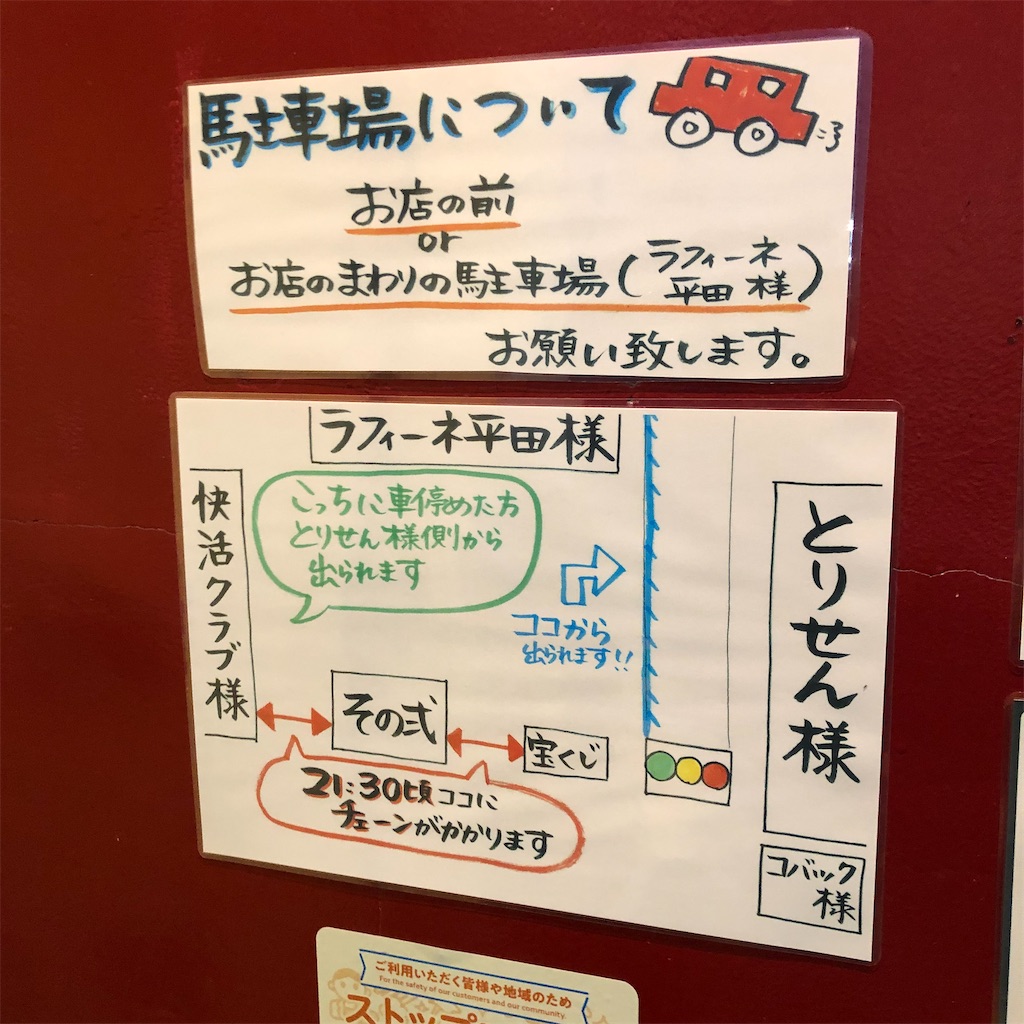 駐車場について
ころ
お店の前
or
お店のまわりの駐車場(ラフィーネ平田様)
お願い致します。
ラフィーネ平田様
快活クラブ様
こっちに車停めた方
とりせん様側から
出られます
ココから
出られます!!
とりせん様
その弐
宝くじ
21:30頃ココに
チェーンがかかります
コバック
様
ご利用いただく皆様や地域のため
For the safety of our customers and our community.
ストップ